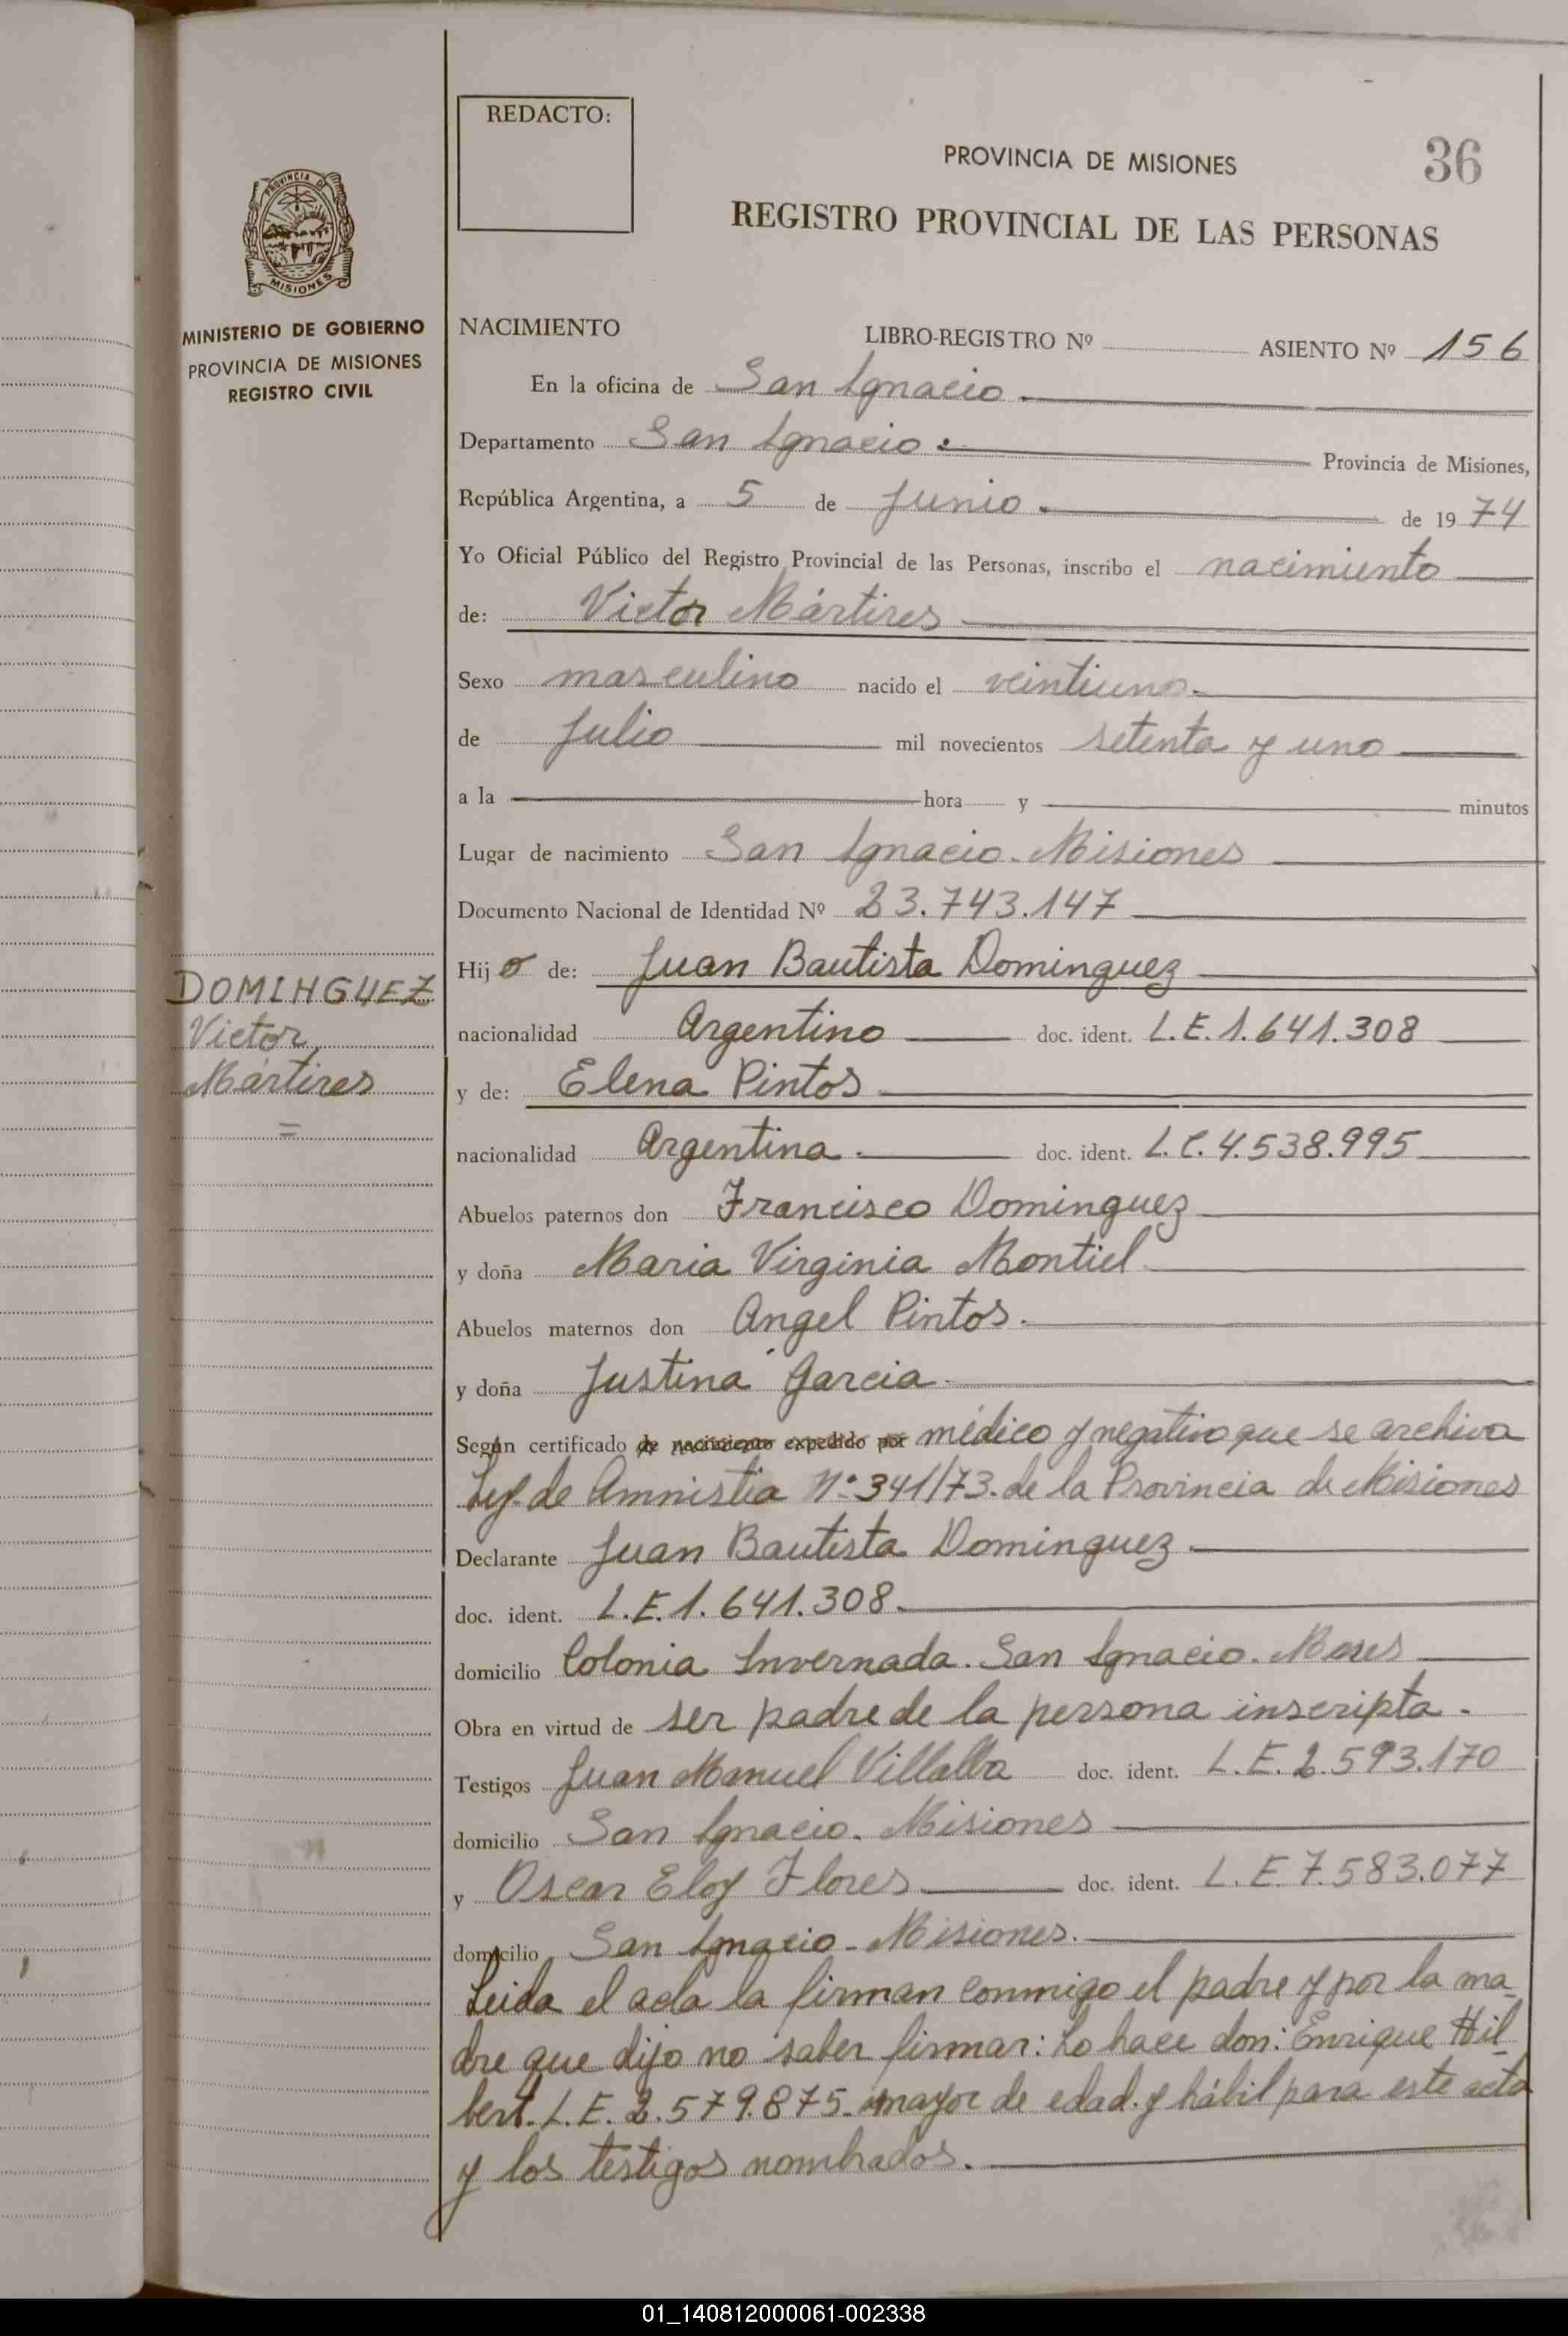 REDACTO:
PROVINCIA DE MISIONES
36
REGISTRO PROVINCIAL DE LAS PERSONAS
PROVINCIA DE
MISIONES
MINISTERIO DE GOBIERNO
PROVINCIA DE MISIONES
REGISTRO CIVIL
NACIMIENTO LIBRO-REGISTRO Nº ASIENTO Nº 156
En la oficina de San Ignacio.
Departamento San Ignacio. Provincia de Misiones,
República Argentina, a 5 de Junio. de 1974
Yo Oficial Público del Registro Provincial de las Personas, inscribo el nacimiento
de: Victor Mártires
Sexo masculino nacido el veintiuno.
de Julio mil novecientos setenta y uno
a la hora y minutos
Lugar de nacimiento San Ignacio. Misiones
Documento Nacional de Identidad Nº 23.743.147
Hijo de: Juan Bautista Dominguez
DOMINGUEZ
Victor
Mártires
=
nacionalidad Argentino doc. ident. L.E. 1.641.308
y de: Elena Pintos
nacionalidad Argentina. doc. ident. L.C. 4.538.995
Abuelos paternos don Francisco Dominguez
y doña Maria Virginia Montiel
Abuelos maternos don Angel Pintos.
y doña Justina Garcia
Según certificado de nacimiento expedido por médico y negativo que se archiva
Ley. de Amnistia Nº 341/73. de la Provincia de Misiones
Declarante Juan Bautista Dominguez.
doc. ident. L.E. 1.641.308.
domicilio Colonia Invernada. San Ignacio. Mnes
Obra en virtud de ser padre de la persona inscripta.
Testigos Juan Manuel Villalba doc. ident. L.E. 2.593.170
domicilio San Ignacio. Misiones
y Oscar Eloy Flores doc. ident. L.E. 7.583.077
domicilio San Ignacio - Misiones.
Leida el acta la firman conmigo el padre y por la ma-
dre que dijo no saber firmar: Lo hace don: Enrique Hil-
bert. L.E. 2.579.875. mayor de edad. y hábil para este acto
y los testigos nombrados.
01_140812000061-002338